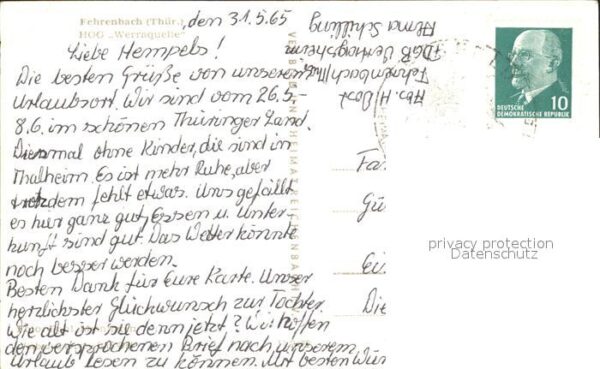 Fehrenbach (Thür.)
HOG „Werraquelle"
, den 31.5.65
Liebe Hempels!
Die besten Grüße von unserem
Urlaubsort. Wir sind vom 26.5.
8.6. im schönen Thüringer Land.
Diesmal ohne Kinder, die sind in
Thalheim. Es ist mehr Ruhe, aber
trotzdem fehlt etwas. Uns gefällt
es hier ganz gut, Essen u. Unter-
kunft sind gut. Das Wetter könnte
noch besser werden.
Besten Dank für Eure Karte. Unser
herzlichster Glückwunsch zur Tochter.
Wie alt ist sie denn jetzt? Wir hoffen
den versprochenen Brief nach unserem
Urlaub lesen zu können. Mit besten
Abs. H.
Fehrenbach/Thür.
FDGB Vertragsheim
Fa
Gü
Die
DEUTSCHE
DEMOKRATISCHE REPUBLIK
10
privacy protection
Datenschutz